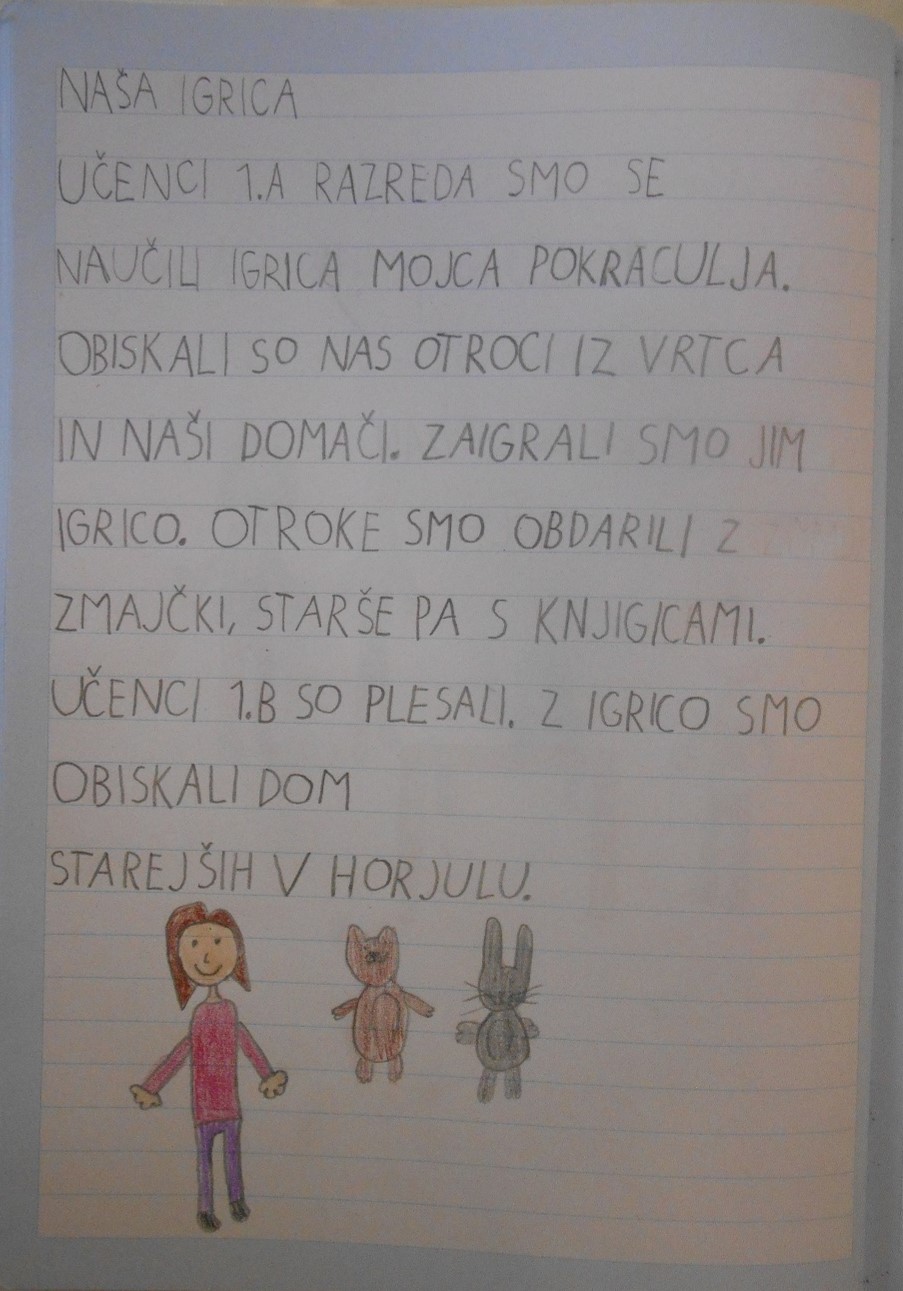 NAŠA IGRICA
UČENCI 1.A RAZREDA SMO SE
NAUČILI IGRICA MOJCA POKRACULJA.
OBISKALI SO NAS OTROCI IZ VRTCA
IN NAŠI DOMAČI. ZAIGRALI SMO JIM
IGRICO. OTROKE SMO OBDARILI Z
ZMAJČKI, STARŠE PA S KNJIGICAMI.
UČENCI 1.B SO PLESALI. Z IGRICO SMO
OBISKALI DOM
STAREJŠIH V HORJULU.